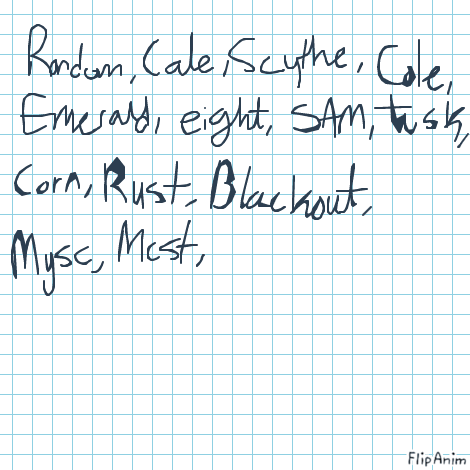 Random, Cale, Scythe, Cole,
Emerald, eight, SAM, tusk,
Corn, Rust, Blackout,
Mysc, Mcst,
FlipAnim